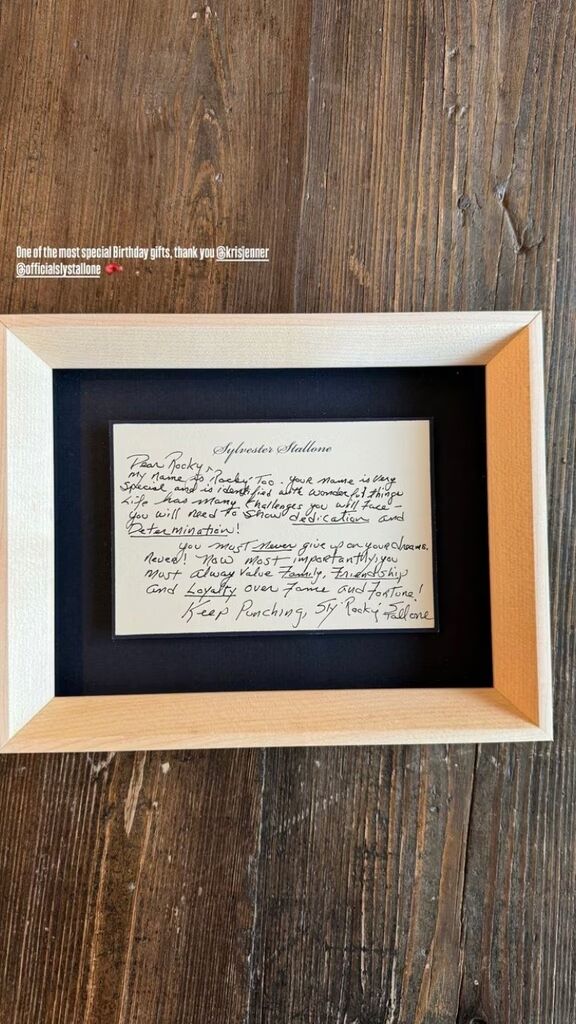 One of the most special Birthday gifts, thank you @krisjenner
@officialslystallone
Sylvester Stallone
Dear Rocky,
my name is "Rocky" Too. your name is very
Special and is identified with wonderful things
Life has many Challenges you will face -
you will need to show dedication and
Determination!
you must never give up on your dreams.
Never! Now most importantly, you
must alway value Family, Friendship
and Loyalty over Fame and Fortune!
Keep Punching, Sly "Rocky" Stallone